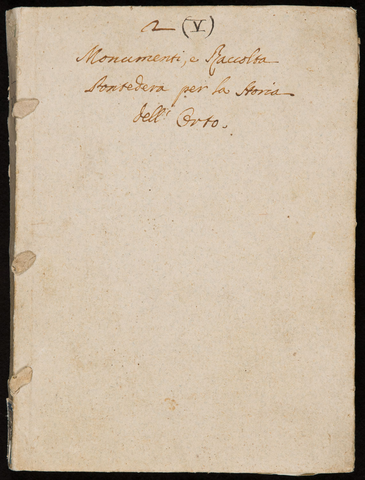 2 (V)
Monumenti, e Raccolta
Pontedera per la Storia
dell' Orto.